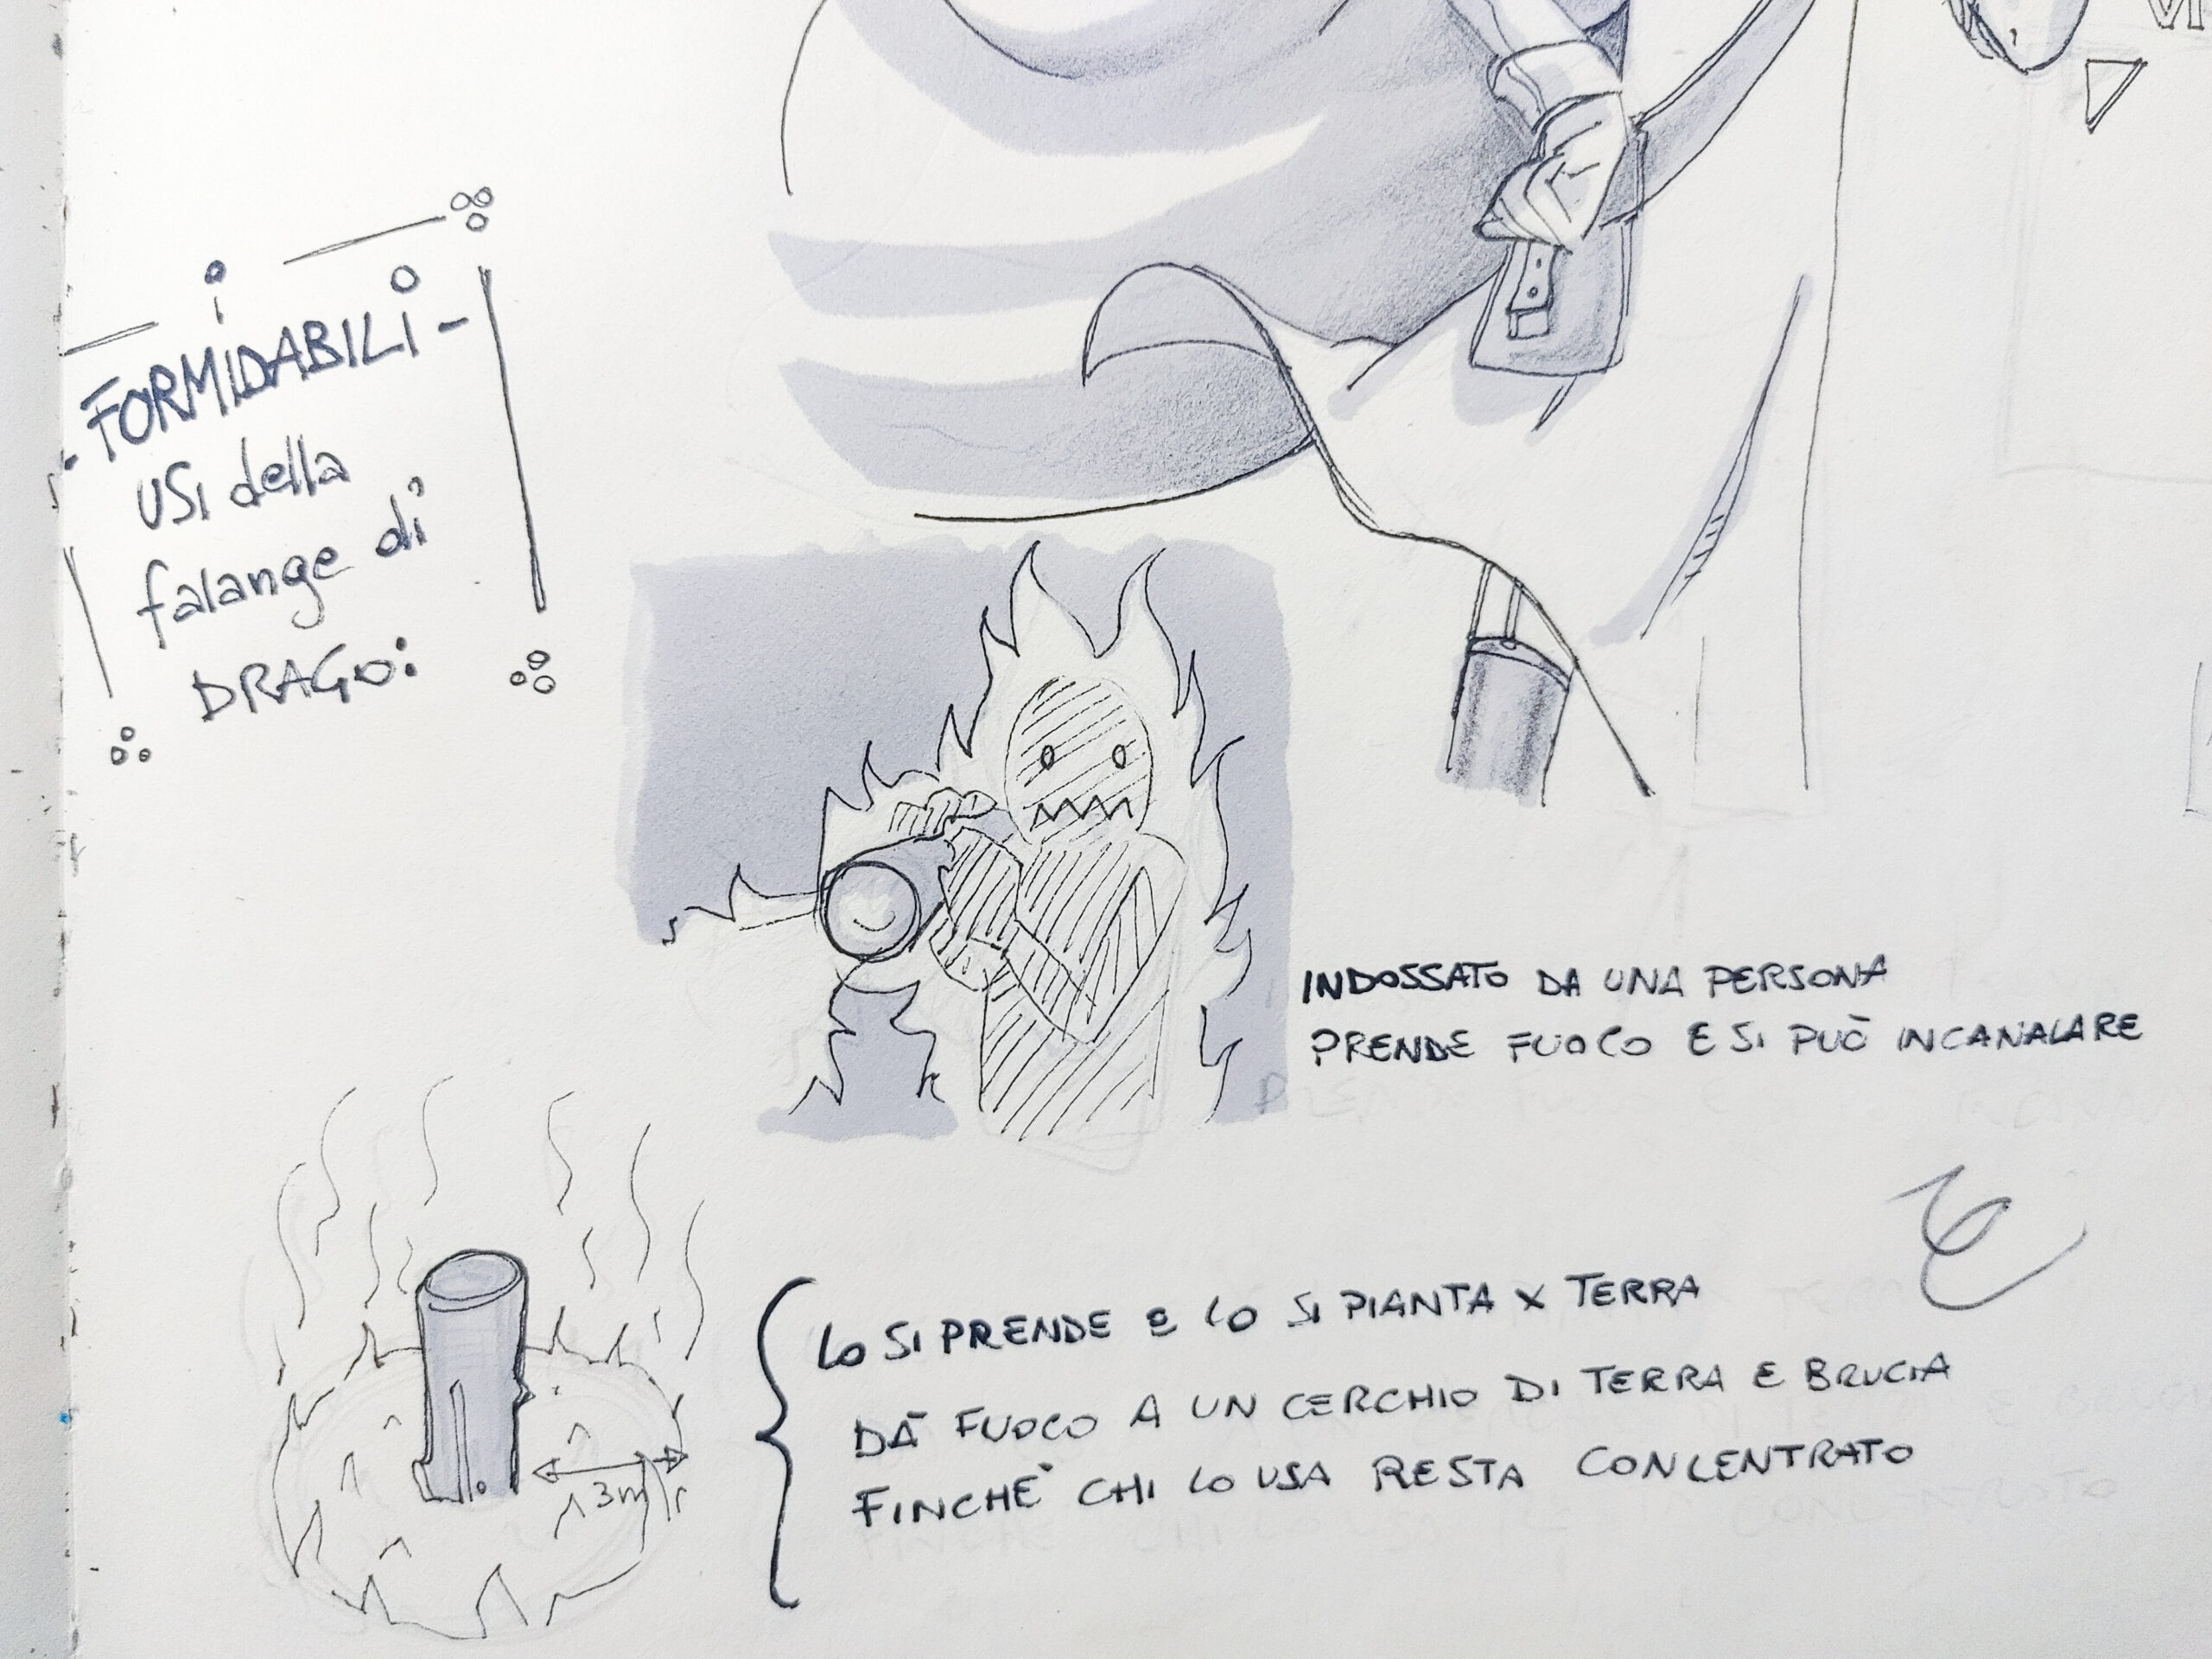 i
- FORMIDABILI -
USI della
falange di
DRAGO:
INDOSSATO DA UNA PERSONA
PRENDE FUOCO E SI PUÒ INCANALARE
LO SI PRENDE E LO SI PIANTA X TERRA
DÀ FUOCO A UN CERCHIO DI TERRA E BRUCIA
FINCHÈ CHI LO USA RESTA CONCENTRATO
3m